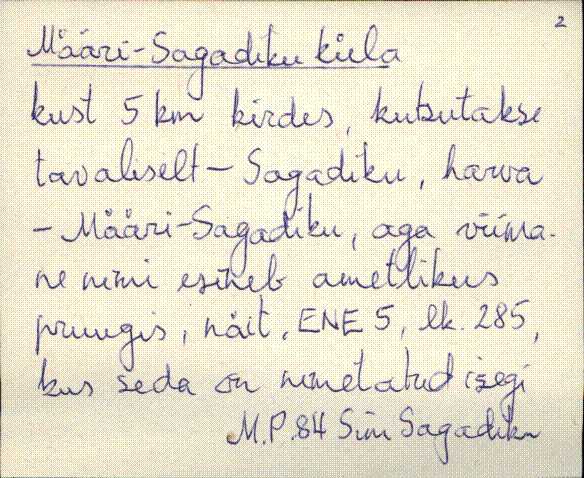 2
Määri-Sagadiku küla
kust 5 km kirdes, kutsutakse
tavaliselt – Sagadiku, harva
– Määri-Sagadiku, aga viima-
ne nimi esineb ametlikus
pruugis, näit. ENE 5, lk. 285,
kus seda on nimetatud isegi
M.P. 84 Simi Sagadiku